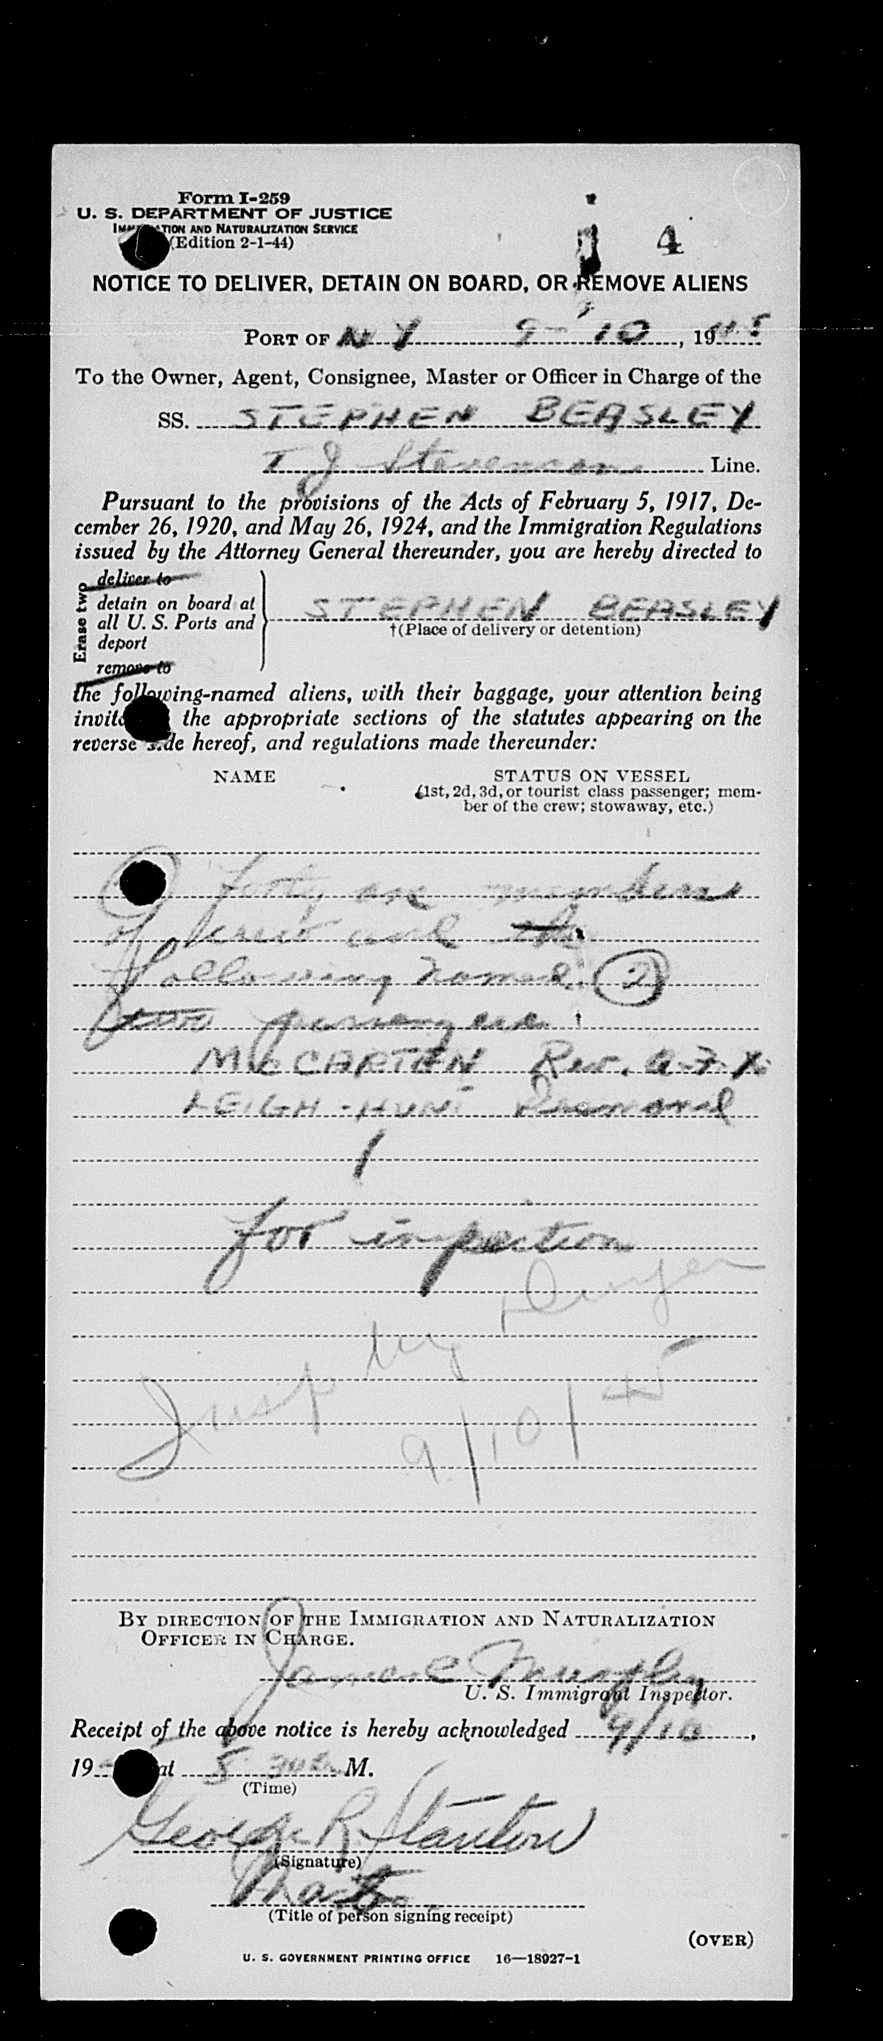 Form I-259
U. S. DEPARTMENT OF JUSTICE
IMMIGRATION AND NATURALIZATION SERVICE
(Edition 2-1-44)
4
NOTICE TO DELIVER, DETAIN ON BOARD, OR REMOVE ALIENS
PORT OF N Y 9-10, 1945
To the Owner, Agent, Consignee, Master or Officer in Charge of the
SS. STEPHEN BEASLEY
T J Stevenson Line.
Pursuant to the provisions of the Acts of February 5, 1917, De-
cember 26, 1920, and May 26, 1924, and the Immigration Regulations
issued by the Attorney General thereunder, you are hereby directed to
Erase two
deliver to
detain on board at
all U. S. Ports and
deport
remove to
STEPHEN BEASLEY
†(Place of delivery or detention)
the following-named aliens, with their baggage, your attention being
invited the appropriate sections of the statutes appearing on the
reverse side hereof, and regulations made thereunder:
NAME
STATUS ON VESSEL
(1st, 2d, 3d, or tourist class passenger; mem-
ber of the crew; stowaway, etc.)
forty one members
of crew and the
following named (2)
two passengers
McCARTEN Rev. A.F.X.
LEIGH-HUNT Desmond
for inspection
Insp by Dwyer
9/10/45
BY DIRECTION OF THE IMMIGRATION AND NATURALIZATION
OFFICER IN CHARGE.
James C Murphy
U. S. Immigrant Inspector.
Receipt of the above notice is hereby acknowledged 9/10,
19 at 5 30 M.
(Time)
George R. Stanton
(Signature)
Master
(Title of person signing receipt)
(OVER)
U. S. GOVERNMENT PRINTING OFFICE 16—18927-1